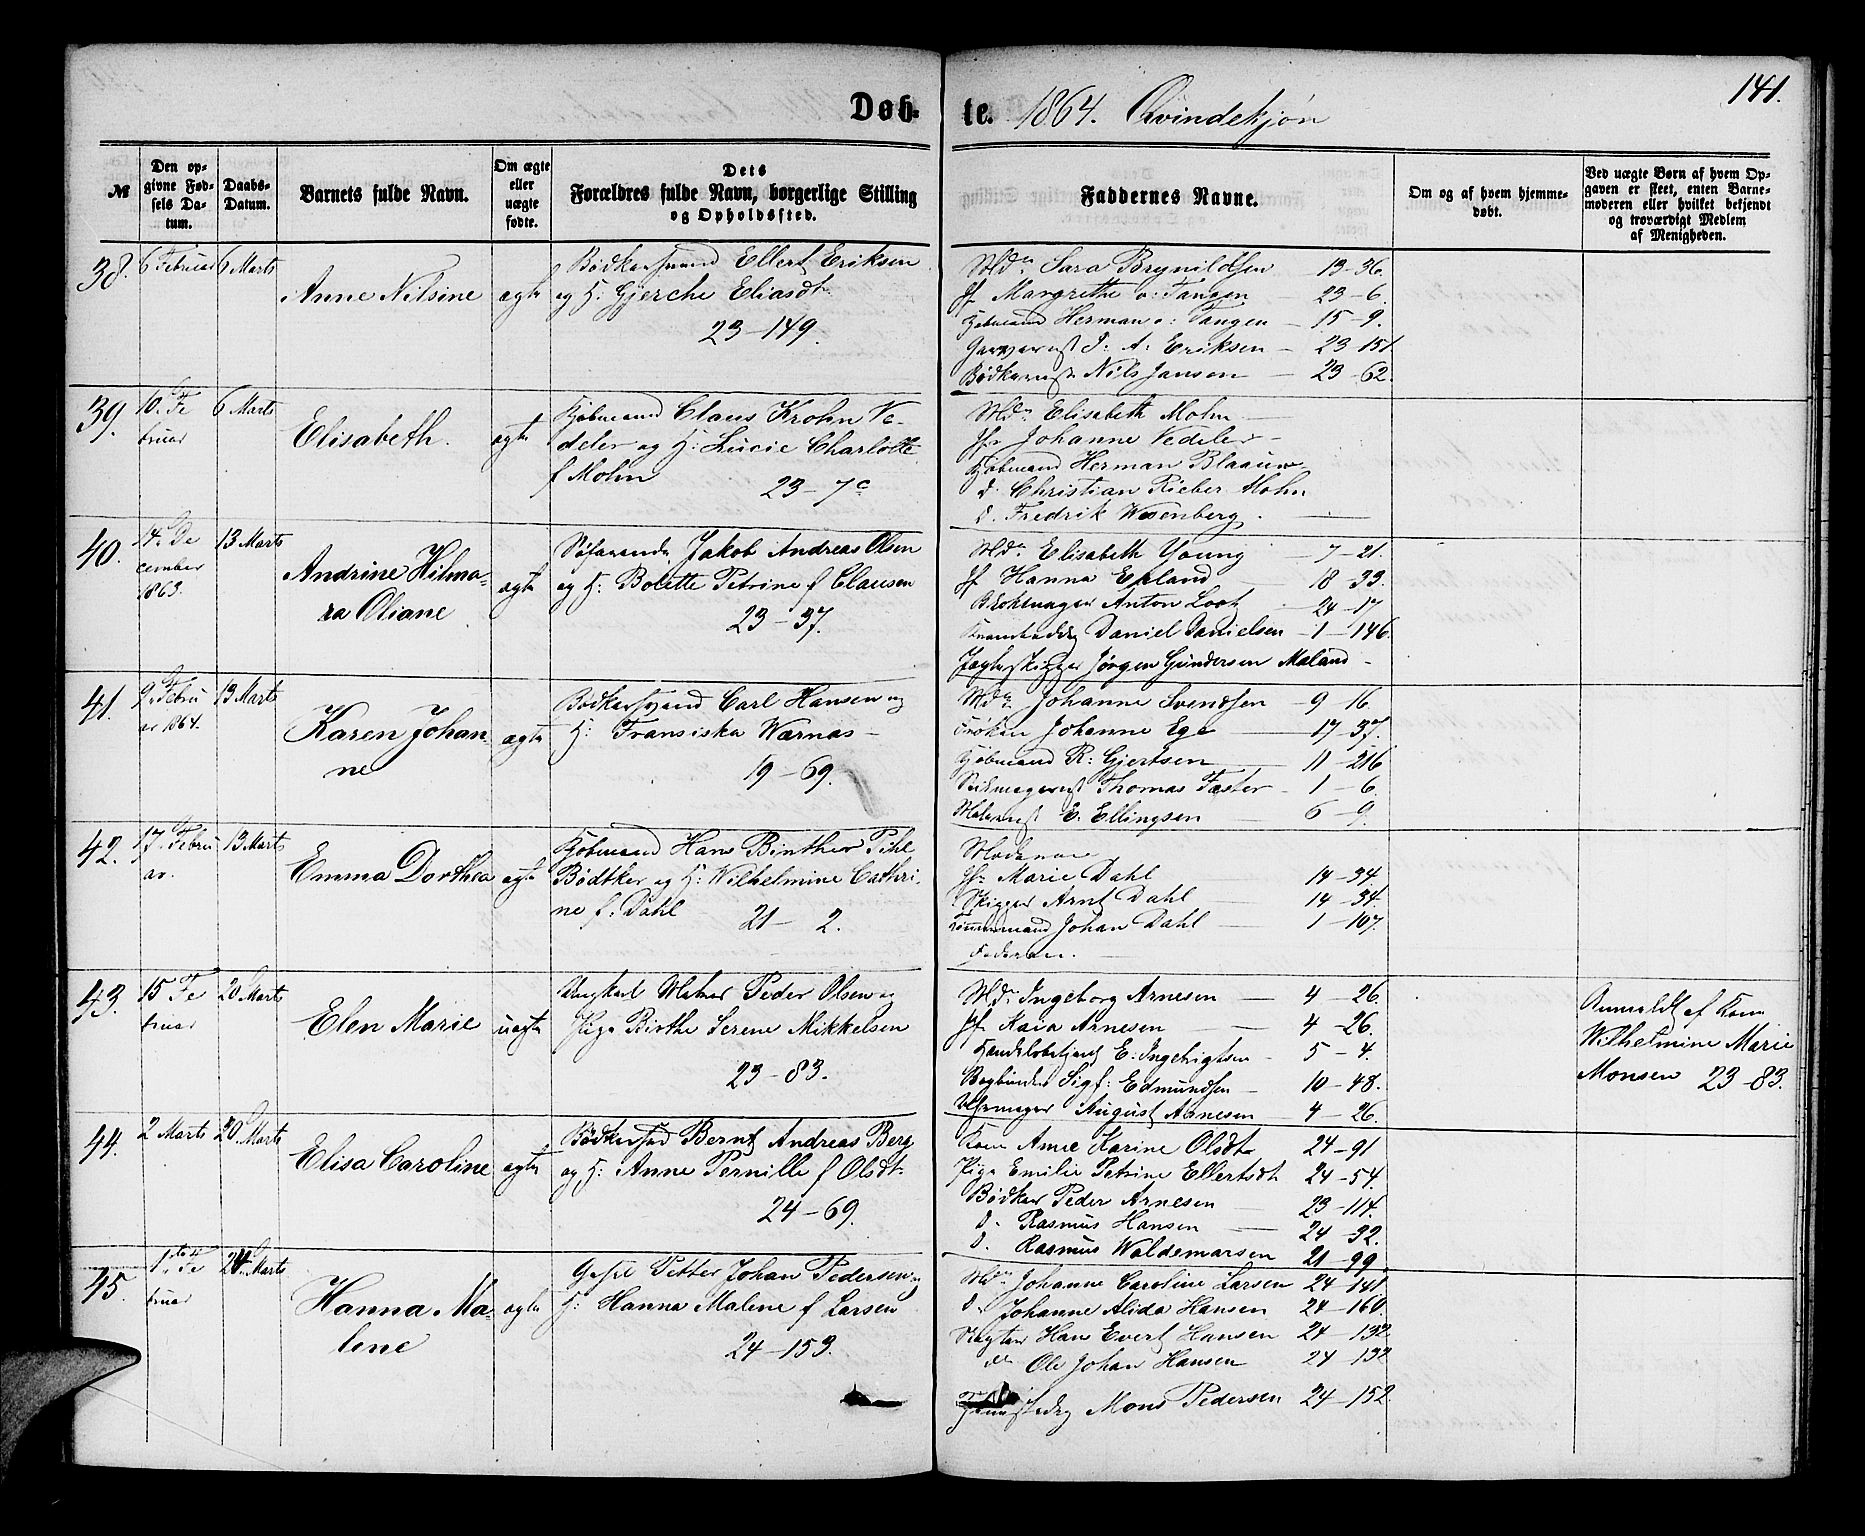 141.
Døb-te. 1864. Qvindekjøn
№
Den opgivne Fødsels Datum.
Daabs-Datum.
Barnets fulde Navn.
Om ægte eller uægte fødte.
Dets Forældres fulde Navn, borgerlige Stilling og Opholdssted.
Faddernes Navne.
Om og af hvem hjemmedøbt.
Ved uægte Børn af hvem Opgaven er skeet, enten Barnemoderen eller hvilket bekjendt og troværdigt Medlem af Menigheden.
38. 6 Februar 6 Marts
Anne Nilsine ægte
Bødkersvend Ellert Eriksen
og H: Gjerche Eliasdt
23-149.
Mdm Sara Brynildsen 13-36.
Jf Margrethe v: Tangen 23-6.
Kjøbmand Herman v: Tangen 15-9.
J: A: Eriksen 23-151.
Nils Jansen 23-62.
39. 10. Fe
bruar
6 Marts
Elisabeth. ægte
Kjøbmand Claus Krohn Ve-
deler og H: Lucie Charlotte
f Mohn 23-7c
Mdm Elisabeth Mohn
Jfr Johanne Vedeler
Kjøbmand Herman Blaauw
d. Christian Rieber Mohn
d. Fredrik Wesenberg.
40. 14. De
cember
1863.
13 Marts
Andrine Hilma-
ra Oliane ægte
Søfarende Jakob Andreas Olsen
og H: Bolette Petrine f Clausen
23-37.
Mdm Elisabeth Young 7-21.
Jf Hanna Epland 18-33.
Anton Loot 24-17
Daniel Danielsen 1-146.
Jørgen Gundersen Maland
41. 9. Febru
ar 1864.
13 Marts
Karen Johan-
ne ægte
Bødkersvend Carl Hansen og
H: Fransiska Wærnas
19-69.
Mdm Johanne Svendsen 9-16.
Frøken Johanne Ege 17-37.
Kjøbmand R: Gjertsen 11-216
Thomas Faster 1-6.
E: Ellingsen 6-9.
42. 17. Febru
ar.
13 Marts
Emma Dorthea ægte
Kjøbmand Hans Binther Pihl
Bødtker og H: Wilhelmine Cathri-
ne f: Dahl 21-2.
Moderen
Jfr Marie Dahl 14-34.
Skipper Arnt Dahl 14-34.
Tømmermand Johan Dahl 1-107.
Faderen.
43. 15 Fe
bruar
20 Marts
Elen Marie uægte
Ungkarl Matros Peder Olsen og
Pige Birthe Serene Mikkelsen
23-83.
Mdm Ingeborg Arnesen 4-26.
Jf Kaia Arnesen 4-26.
Handelsbetjent E: Ingebrigtsen 5-4.
Bogbinder Sigf: Edmundsen 10-48.
Uhrmager August Arnesen 4-26.
Anmeldt af Kone
Wilhelmine Marie
Monsen 23-83.
44. 2 Marts 20 Marts
Elisa Caroline ægte
Bernt Andreas Berg
og H: Anne Pernille f Olsdt
24-69.
Kone Anne Karine Olsdt 24-91
Pige Emilie Petrine Ellertsdt 24-54.
Bødker Peder Arnesen 23-114.
d. Rasmus Hansen 24-32.
d. Rasmus Waldemarsen 21-99
45. 1ste Fe
bruar
24 Marts
Hanna Ma-
lene ægte
Petter Johan Pedersen og
H: Hanna Malene f Larsen
24-153.
Mdm Johanne Caroline Larsen 24-141
d. Johanne Alida Hansen 24-160.
Hans Evert Hansen 24-132
do Ole Johan Hansen 24-132
Mons Pedersen 24-152.